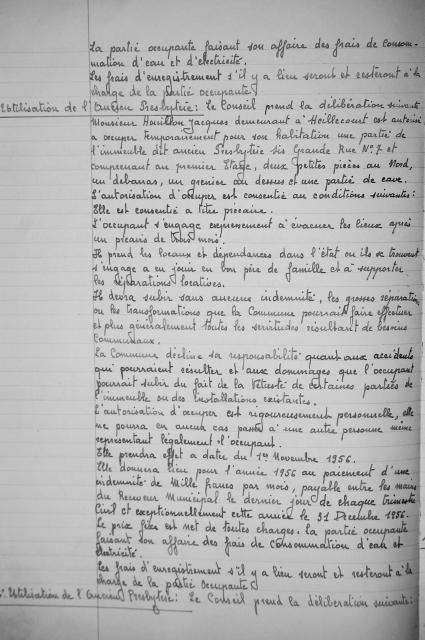 La partie occupante faisant son affaire des frais de consom-
mation d'eau et d'électricité.
Les frais d'enregistrement s'il y a lieu seront et resteront à la
charge de la partie occupante
Utilisation de l'Ancien Presbytère: Le Conseil prend la délibération suivante:
Monsieur Houillon Jacques demeurant à Hoéllecourt est autorisé
à occuper temporairement pour son habitation une partie de
l'immeuble dit ancien Presbytère sis Grande Rue N° 7 et
comprenant au premier Etage, deux petites pièces au Nord,
un débarras, un grenier au dessus et une partie de cave.
L'autorisation d'occuper est consentie au conditions suivantes:
Elle est consentie à titre précaire.
L'occupant s'engage expressément à évacuer les lieux après
un préavis de trois mois.
Il prend les locaux et dépendances dans l'état ou ils se trouvent
s'engage à en jouir en bon père de famille et à supporter
les réparations locatives.
Il devra subir sans aucune indemnité, les grosses réparations
ou les transformations que la Commune pourrait faire effectuer
et plus généralement toutes les servitudes résultant de besoins
Communaux.
La Commune décline sa responsabilité quant aux accidents
qui pourraient résulter et aux dommages que l'occupant
pourrait subir du fait de la vétusté de certaines parties de
l'immeuble ou des installations existantes.
L'autorisation d'occuper est rigoureusement personnelle, elle
ne pourra en aucun cas passer à une autre personne même
représentant légalement l'occupant.
Elle prendra effet à dater du 1er Novembre 1956.
Elle donnera lieu pour l'année 1956 au paiement d'une
indemnité de Mille francs par mois, payable entre les mains
du Receveur Municipal le dernier jour de chaque trimestre
Civil et exceptionnellement cette année le 31 Décembre 1956.
Le prix fixé est net de toutes charges. la partie occupante
faisant son affaire des frais de consommation d'eau et
électricité.
Les frais d'enregistrement s'il y a lieu seront et resteront à la
charge de la partie occupante
Utilisation de l'Ancien Presbytère: Le Conseil prend la délibération suivante: